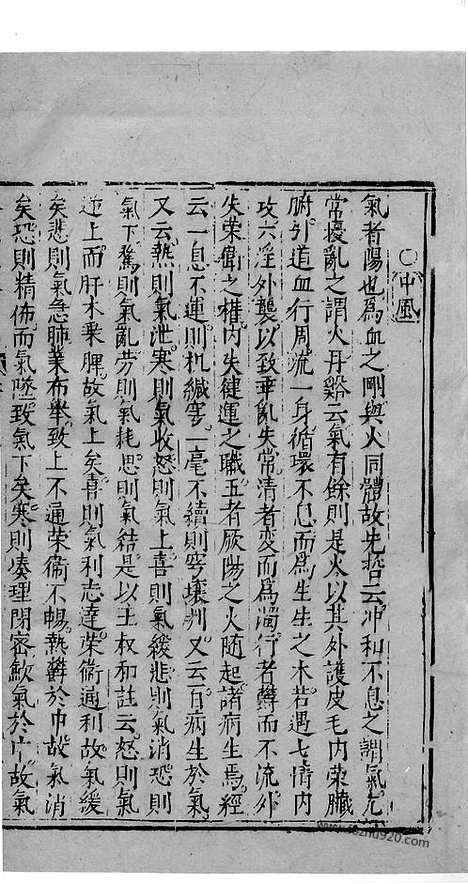 ○中風
氣者陽也爲血之剛與火同體故先哲云冲和不息之謂氣尤
常擾亂之謂火丹谿云氣有餘則是火以其外護皮毛内荣臟
腑外道血行周流一身循環不息而爲生生之木若遇七情内
攻六淫外襲以致乖亂失常清者变而爲濁行者欝而不流外
失荣衛之權内失健運之職五者厥陽之火随起諸病生焉經
云一息不運則机緘窮一毫不續則穹壤判又云百病生於氣
又云熱則氣泄寒則氣收怒則氣上喜則氣緩悲則氣消恐則
氣下驚則氣亂劳則氣耗思則氣結是以王叔和註云怒則氣
逆上而肝木乘脾故氣上矣喜則氣利志達荣衛通利故氣緩
矣悲則氣急肺葉布舉致上不通荣衛不暢熱欝於中故氣消
矣恐則精佈而氣墜致氣下矣寒則凑理閉密歛氣於中故氣